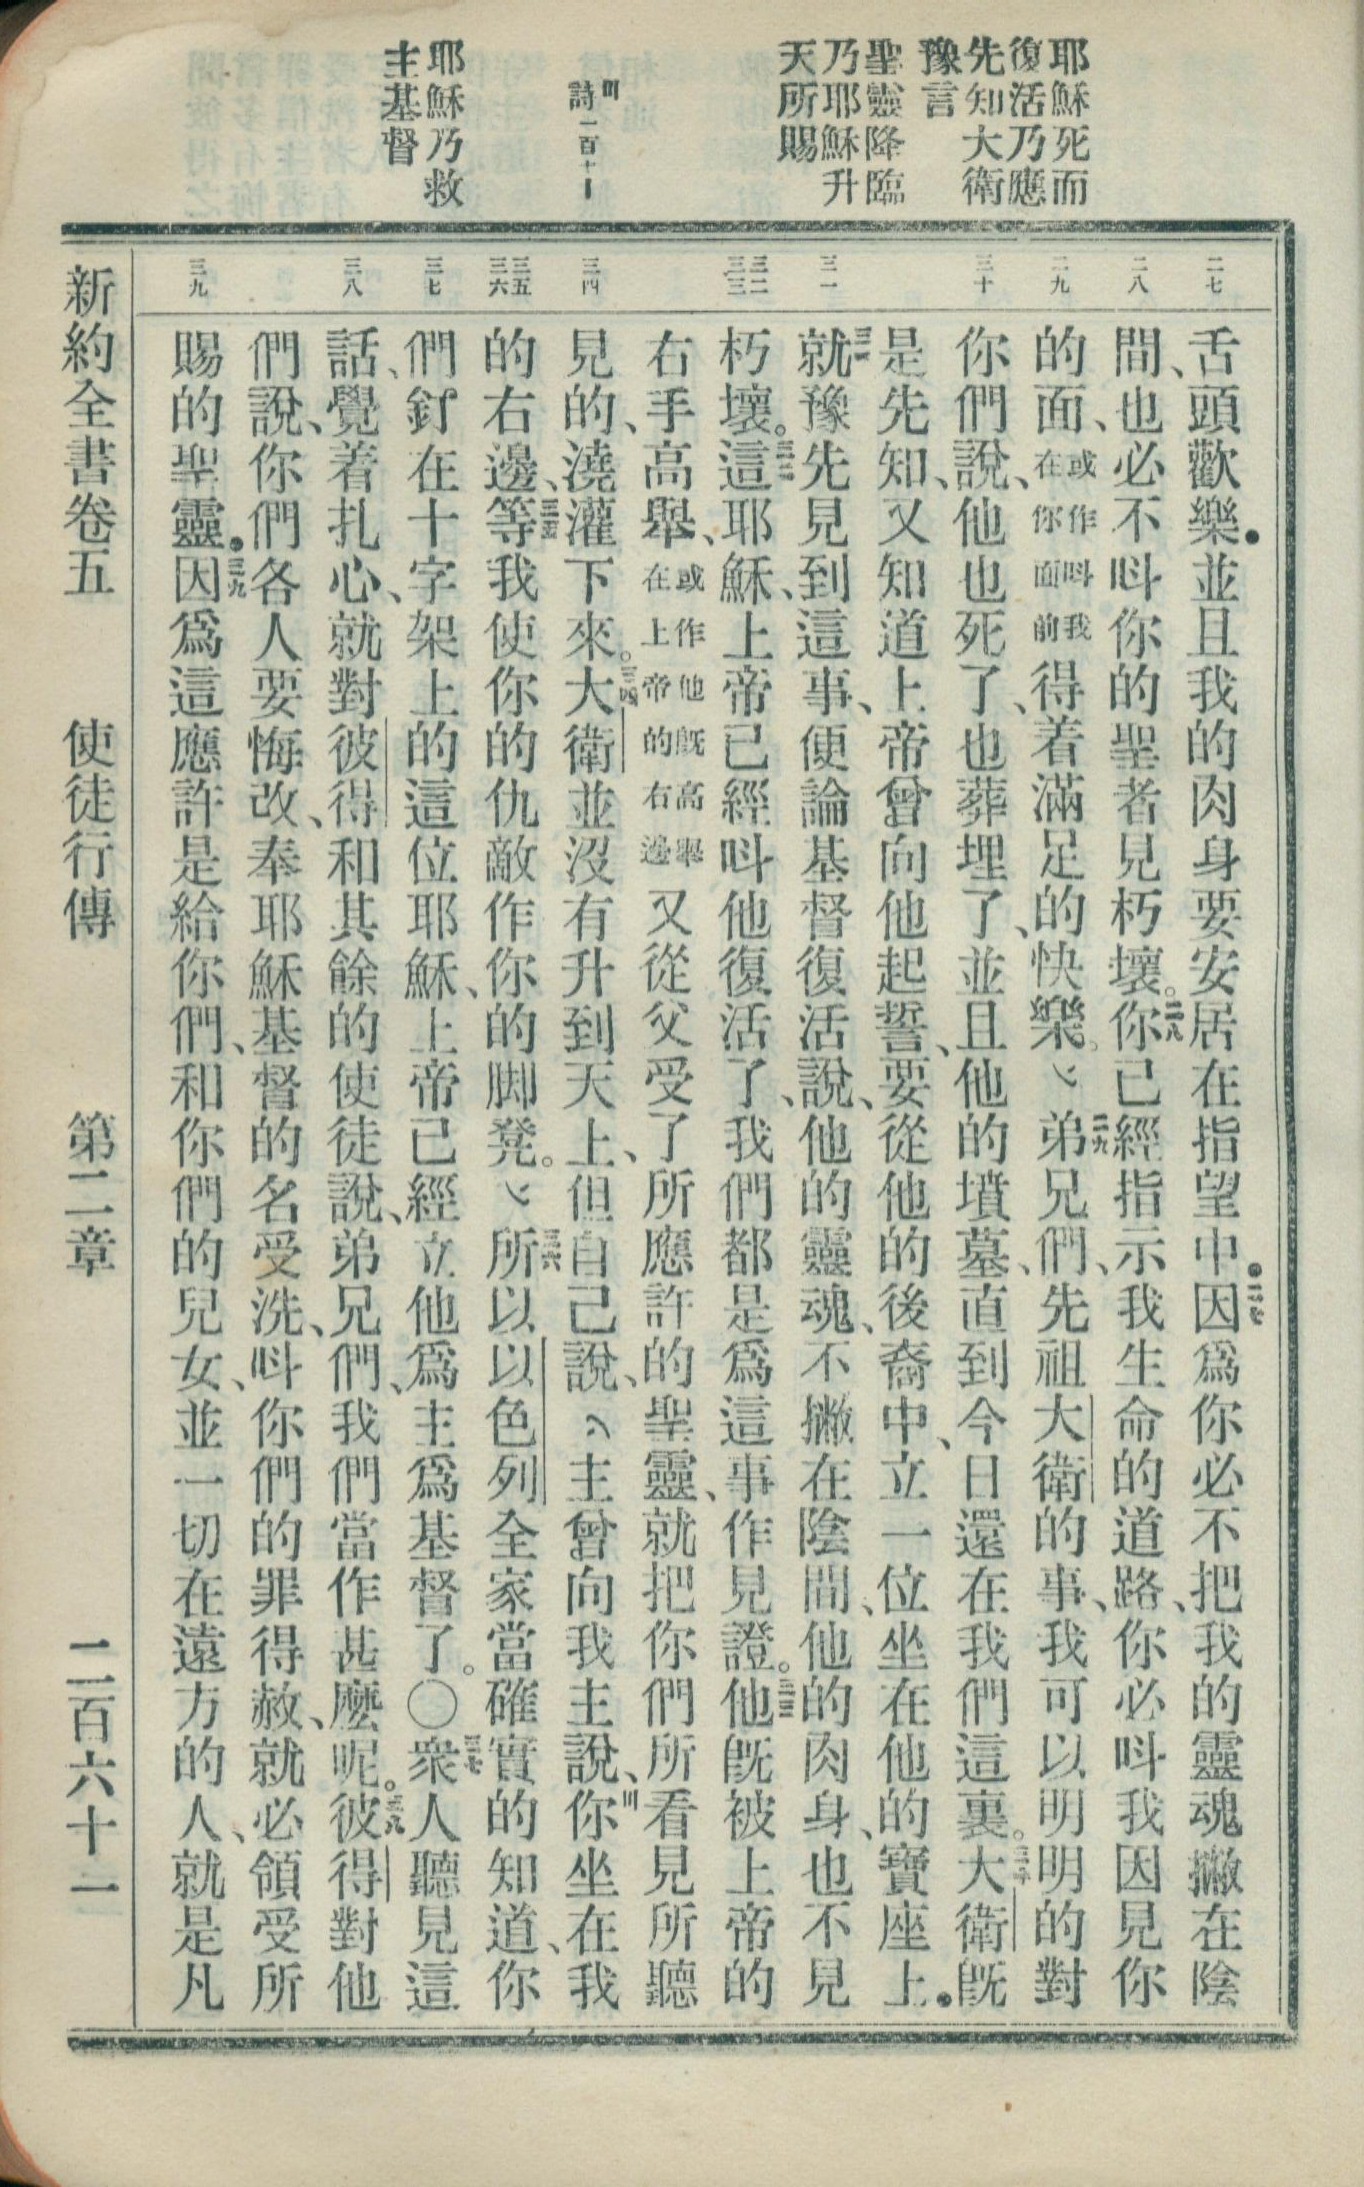 耶穌死而
復活乃應
先知大衛
豫言
聖靈降臨
乃耶穌升
天所賜
詩一百十一
耶穌乃救
主基督
二七
二八
二九
三十
三一
三二
三三
三四
三五
三六
三七
三八
三九
舌頭歡樂.並且我的肉身要安居在指望中.二七因爲你必不把我的靈魂撇在陰
間、也必不呌你的聖者見朽壞。二八你已經指示我生命的道路、你必呌我因見你
的面、或作呌我在你面前得着滿足的快樂。二九弟兄們、先祖大衛的事、我可以明明的對
你們說、他也死了、也葬埋了、並且他的墳墓、直到今日還在我們這裏。三十大衛旣
是先知、又知道上帝曾向他起誓、要從他的後裔中、立一位坐在他的寶座上.
三一就豫先見到這事、便論基督復活說、他的靈魂、不撇在陰間、他的肉身、也不見
朽壞。三二這耶穌、上帝已經呌他復活了、我們都是爲這事作見證。三三他旣被上帝的
右手高舉、或作他旣高舉在上帝的右邊又從父受了所應許的聖靈、就把你們所看見所聽
見的、澆灌下來。三四大衛並沒有升到天上、但自己說、主曾向我主說、你坐在我
的右邊、三五等我使你的仇敵作你的脚凳。三六所以以色列全家當確實的知道、你
們釘在十字架上的這位耶穌、上帝已經立他爲主爲基督了。〇三七衆人聽見這
話、覺着扎心、就對彼得和其餘的使徒說、弟兄們、我們當作甚麼呢。三八彼得對他
們說、你們各人要悔改、奉耶穌基督的名受洗、呌你們的罪得赦、就必領受所
賜的聖靈.三九因爲這應許是給你們、和你們的兒女、並一切在遠方的人、就是凡
新約全書卷五 使徒行傳 第二章 二百六十一